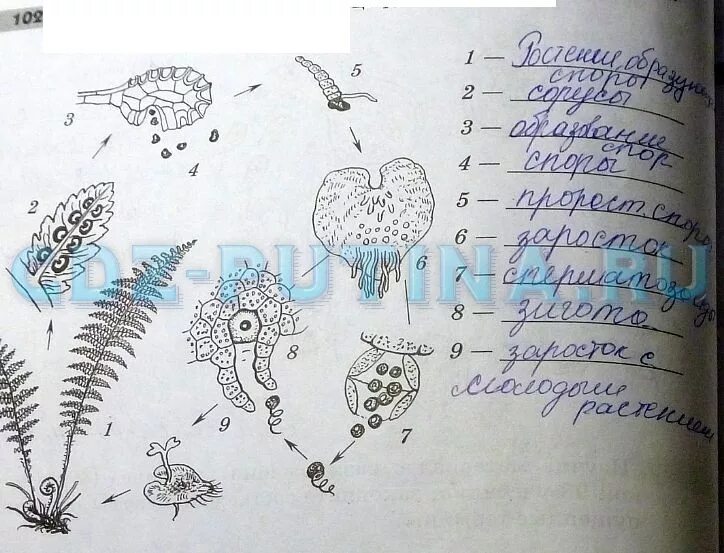 102
1 — Растение, образующее
споры
2 — сорусы
3 — образвание
спор
4 — споры
5 — пророст. спора
6 — заросток
7 — сперматозоиды
8 — зигота
9 — заросток с
молодым
растением
GDZ-PUTINA.RU
1
2
3
4
5
6
7
8
9